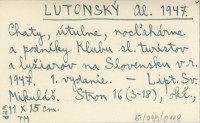 LUTONSKÝ Al. 1947.
Chaty, útulne, nocľahárne
a podniky Klubu sl. turistov
a lyžiarov na Slovensku v r.
1947. 1. vydanie. — Lipt. Sv.
Mikuláš. Stron 16 (3-18), okl.,
11 x 15 cm
TM